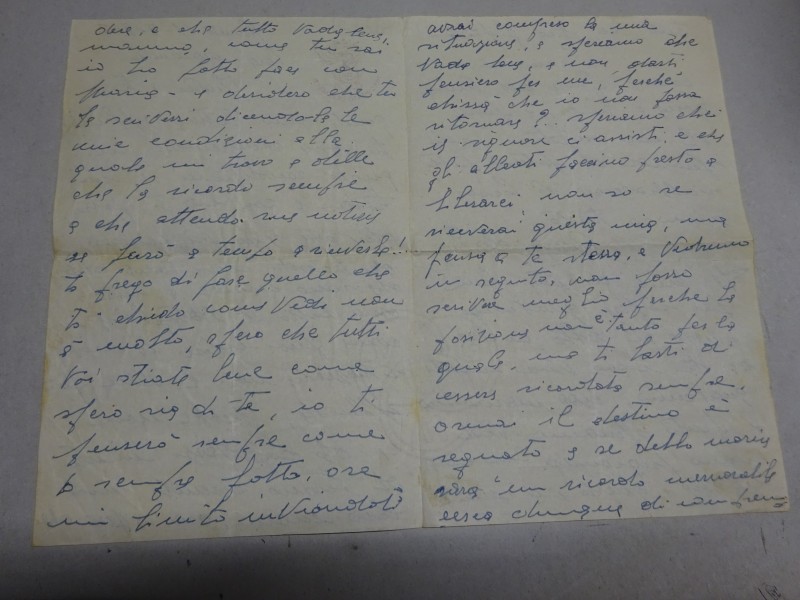 dere, e che tutto vada bene,
mamma, come tu sai
io ho fatto pace con
Maria - e desidero che tu
le scrivessi dicendole le
mie condizioni alla
quale mi trovo e dille
che la ricordo sempre
e che attendo sue notizie
se farò a tempo a riceverle!
ti prego di fare quello che
ti chiedo come vedi non
è molto, spero che tutti
voi stiate bene come
spero sia di te, io ti
penserò sempre come
ò sempre fatto, ora
mi limito inviandoti
avrai compreso la mia
situazione, e speriamo che
vada bene, e non darti
pensiero per me, perché
chissà che io non possa
ritornare? .. speriamo che
il signore ci assisti, e che
gli alleati facciano presto a
liberarci non so se
riceverai questa mia, ma
pensa a te stessa, e vedremo
in seguito, non posso
scrivere meglio perche la
posizione non è tanto per la
quale, ma ti basti di
essere ricordata sempre.
oramai il destino è
segnato e se debbo morire
sarà un ricordo memorabile
cerca dunque di non